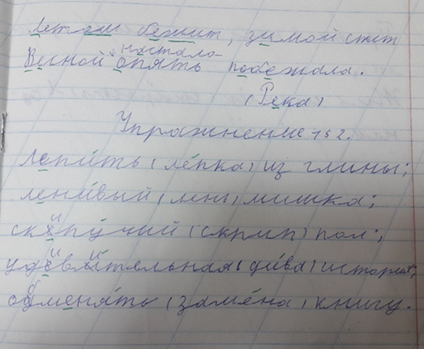 Летом бежит, зимой спит
Весной настала опять побежала.
(Река)
Упражнение 152.
Лепить (лепка) из глины;
ленивый (лень) мишка;
скрипучий (скрип) пол;
удивительная (диво) история;
обменять (замена) книгу.